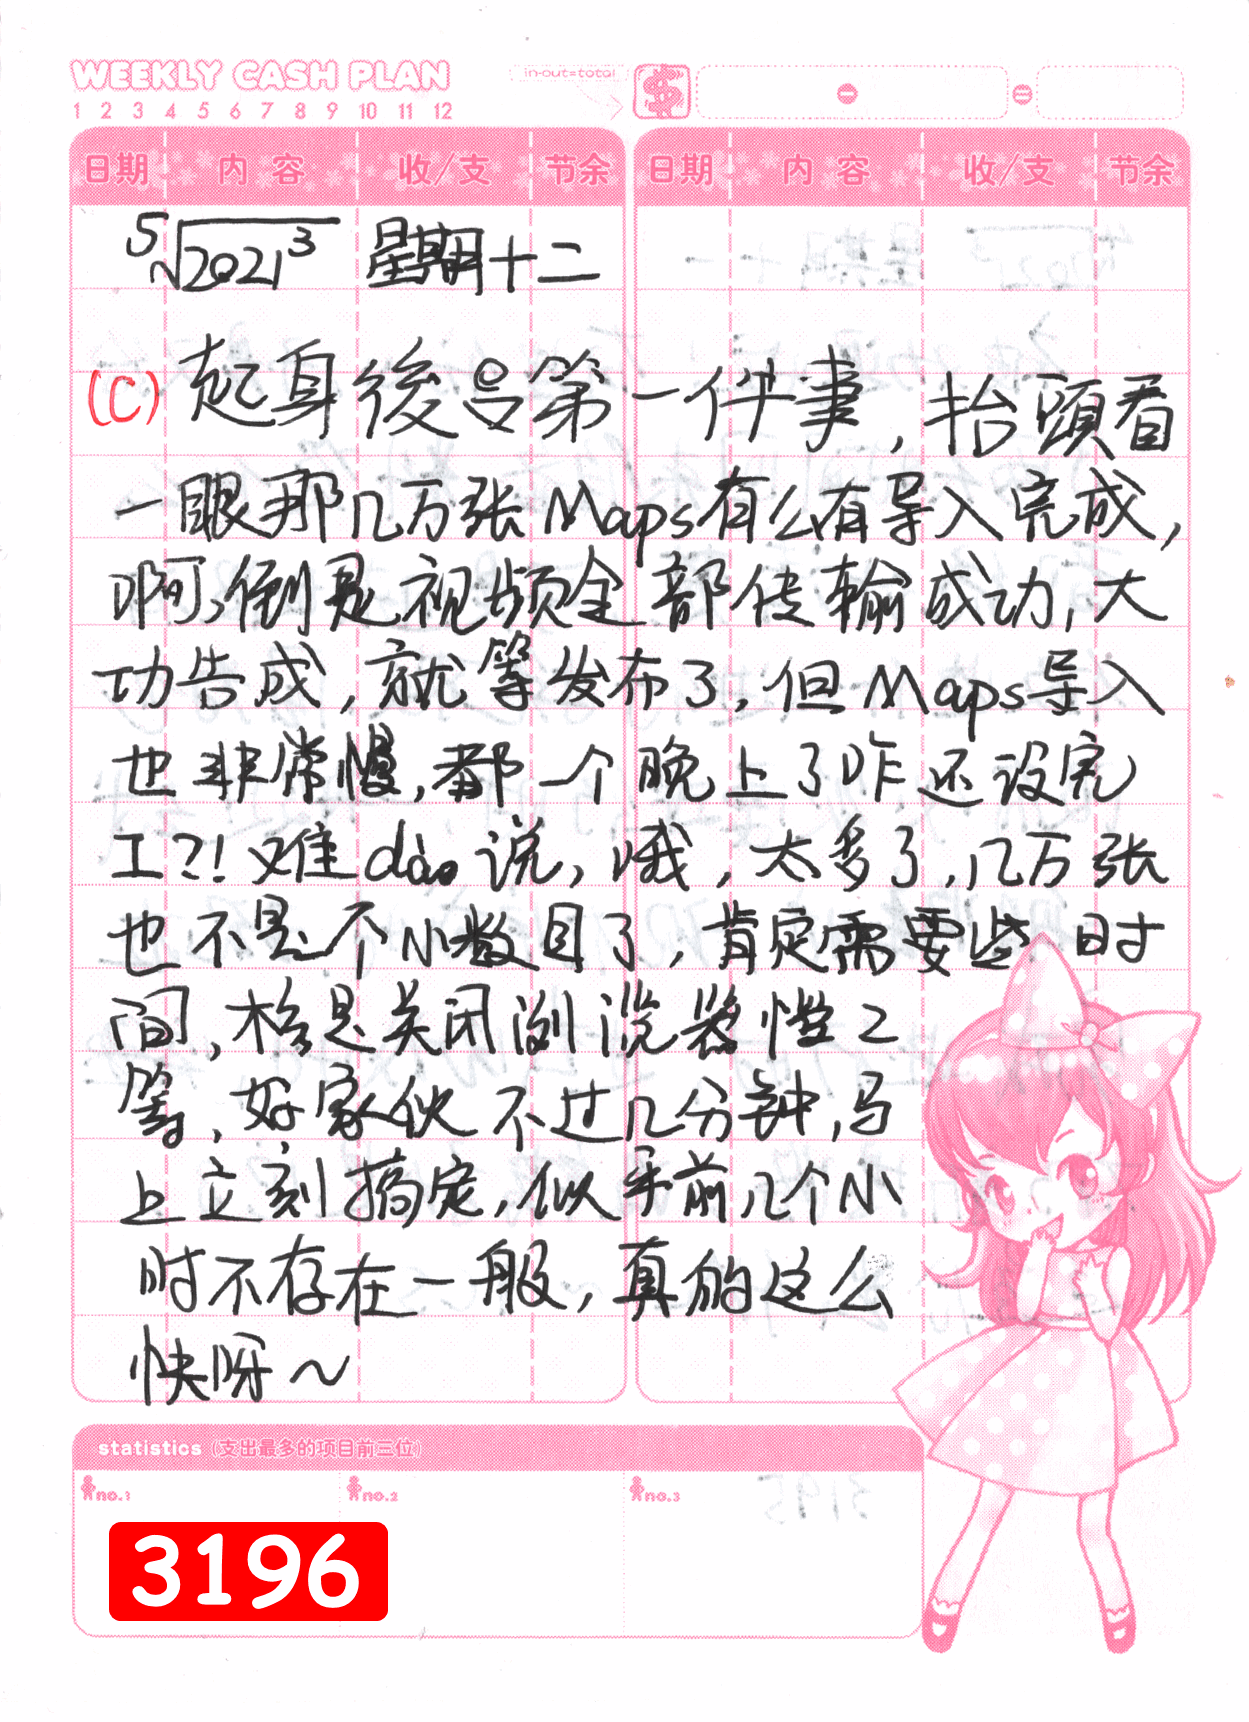 WEEKLY CASH PLAN
1 2 3 4 5 6 7 8 9 10 11 12
in-out=total
日期 内容 收/支 节余 日期 内容 收/支 节余
⁵√2021³ 星期十二
(C) 起身後号第一件事，抬頭看
一眼那几万张Maps有么有导入完成，
啊，倒是视频全部传输成功，大
功告成，就等发布了，但Maps导入
也非常慢，都一个晚上了咋还没完
工?! 难dào说，哦，太多了，几万张
也不是个小数目了，肯定需要些时
间，于是关闭浏览器慢之
等，好家伙不过几分钟，马
上立刻搞定，似乎前几个小
时不存在一般，真的这么
快呀～
statistics (支出最多的项目前三位)
no.1 no.2 no.3
3196